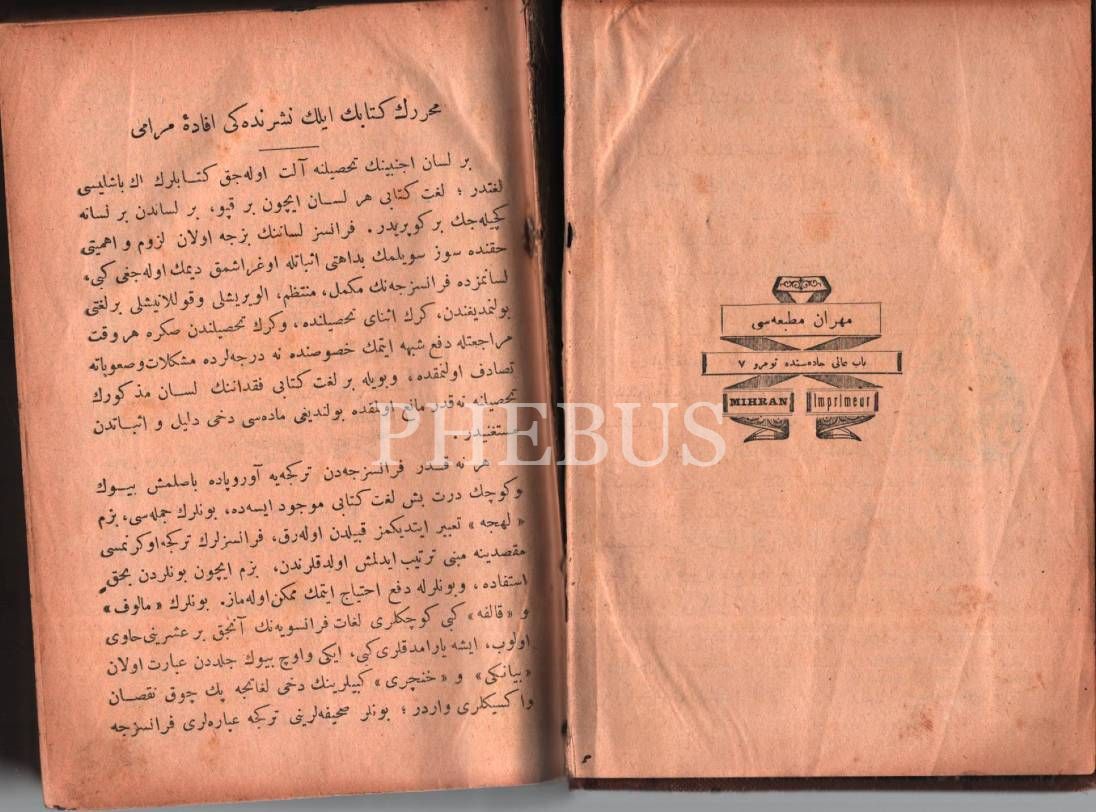 محررك كتابك ايلك نشرنده‌كى افادهٔ مرامى
بر لسان اجنبينك تحصيلنه آلت اوله‌جق كتابلرك اك باشليسى
لغتدر ؛ لغت كتابى هر لسان ايچون بر قپو، بر لساندن بر لسانه
كچيله‌جك بر كوپريدر. فرانسز لساننك بزجه اولان لزوم و اهميتى
حقنده سوز سويلمك بداهتى اثباتله اوغراشمق ديمك اوله‌جغى كبى،
لسانمزده فرانسزجه‌نك مكمل، منتظم، الويريشلى وقوللانيشلى برلغتى
بولنمديغندن، كرك اثناى تحصيلنده، وكرك تحصيلندن صكره هر وقت
مراجعتله دفع شبهه ايتمك خصوصنده نه درجه‌لرده مشكلات و صعوباته
تصادف اولنمقده، وبويله بر لغت كتابى فقداننك لسان مذكورك
تحصيلنه نه‌قدر مانع اولمقده بولنديغى ماده‌سى دخى دليل و اثباتدن
مستغنيدر.
هر نه قدر فرانسزجه‌دن تركجه‌يه آوروپاده باصلمش بيوك
وكوچك درت بش لغت كتابى موجود ايسه‌ده، بونلرك جمله‌سى، بزم
«لهجه» تعبير ايتديكمز قبيلدن اوله‌رق، فرانسزلرك تركجه اوكرنمسى
مقصدينه مبنى ترتيب ايدلمش اولدقلرندن، بزم ايچون بونلردن بحق
استفاده، وبونلرله دفع احتياج ايتمك ممكن اوله‌ماز. بونلرك «مالوف»
و «قالفه» كبى كوچكلرى لغات فرانسويه‌نك آنجق بر عشرينى حاوى
اولوب، ايشه يارامدقلرى كبى، ايكى واوچ بيوك جلددن عبارت اولان
«بيانكى» و «خنچرى» كبيلرينك دخى لغاتجه پك چوق نقصان
واكسيكلرى واردر ؛ بونلر صحيفه‌لرينى تركجه عباره‌لرى فرانسزجه
مهران مطبعه‌سى
باب عالى جاده‌سنده نومرو ٧
MIHRAN Imprimeur
PHEBUS